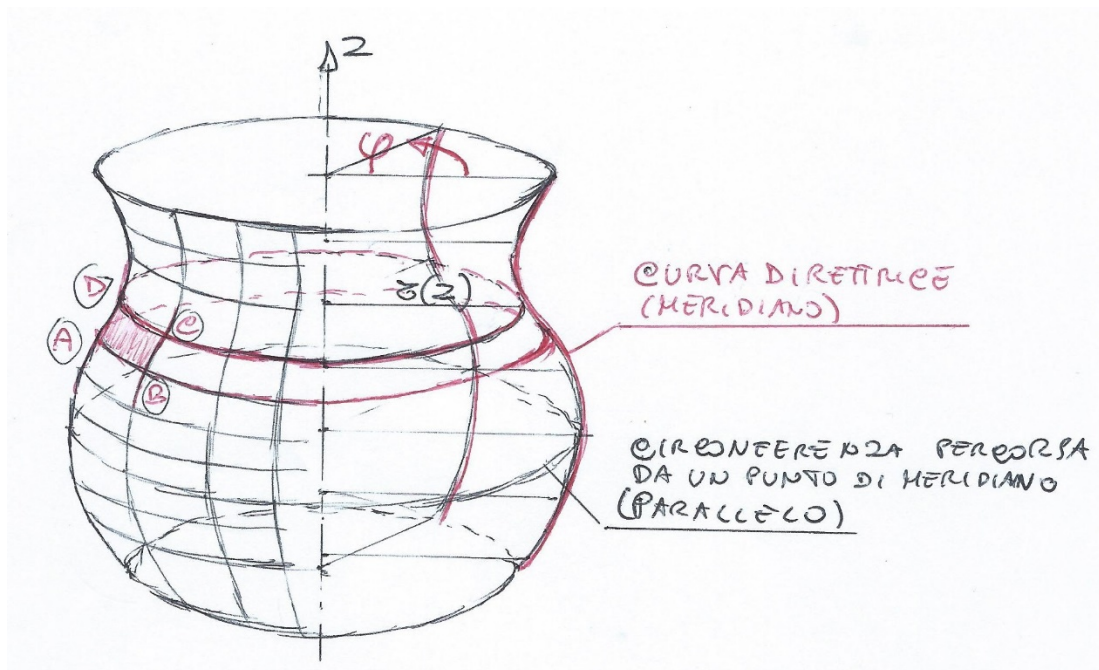 z
φ
D
r(z)
CURVA DIRETTRICE
(MERIDIANO)
A
C
B
CIRCONFERENZA PERCORSA
DA UN PUNTO DI MERIDIANO
(PARALLELO)